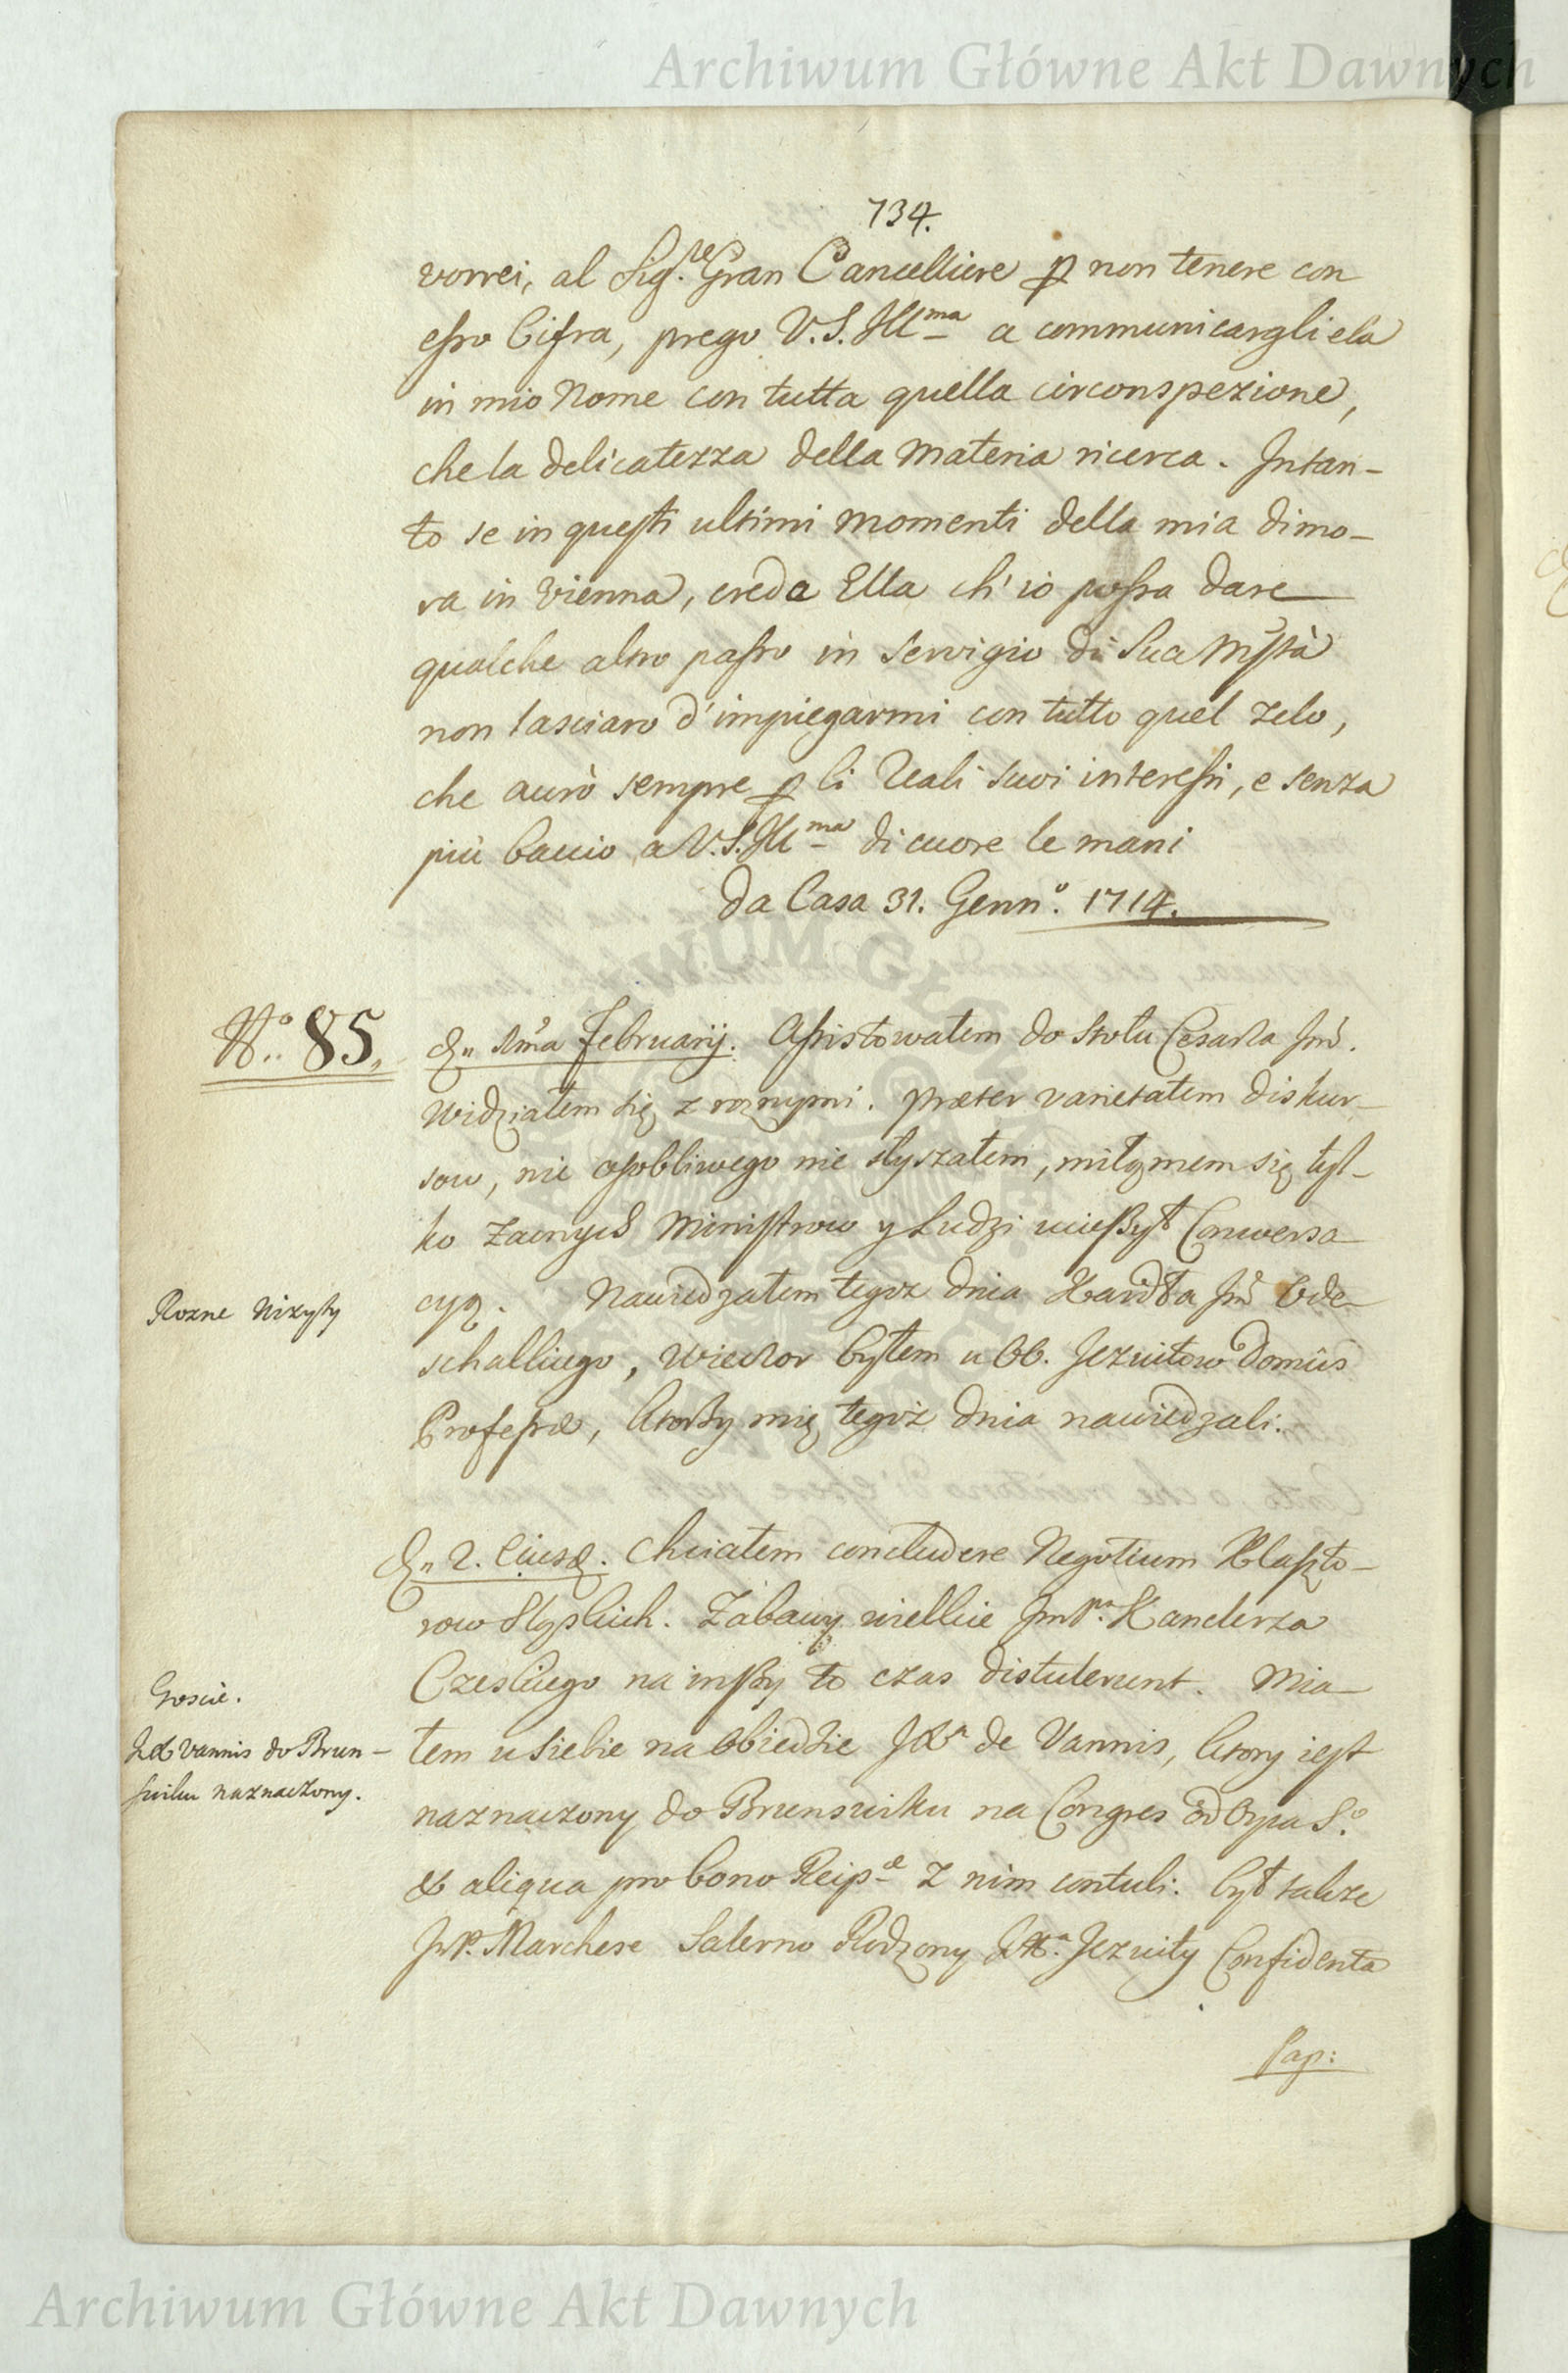 Archiwum Główne Akt Dawnych
734.
vorrei, al Sig.re Gran Cancelliere p non tenere con
esso Cifra, prego V.S. Illma a communicargliela
in mio Nome con tutta quella circonspezione,
che la delicatezza della materia ricerca. Intan-
to se in questi ultimi momenti della mia dimo-
ra in Vienna, creda Ella ch'io possa dare
qualche altro passo in servigio di Sua Mstà
non lasciaro d'impiegarmi con tutto quel zelo,
che aurò sempre p li Reali suoi interessi, e senza
più baccio a V.S. Illma di cuore le mani
Da Casa 31. Genn.o 1714.
No. 85.
Dn 1ma February. Assistowałem do stołu Cesarza Jmć.
Widziałem się z roznymi. præter varietatem diskur-
sow, nic osobliwego nie słyszałem, miłą mem się tyl-
ko Zacnych Ministrow y Ludzi ucieszył Conversa-
cyą. Nawiedzałem tegoż dnia Xardła Jmć Ode-
schalkiego, wieczor byłem u OO. Jezuitow Domûs
Professæ, ktorzy mię tegoż dnia nawiedzali.
Rozne Wizyty
Dn 2. Eiusd. Chciałem concludere Negotium Klaszto-
row Sląskich. Zabawy wielkie JmPa Kanclerza
Czeskiego na inszy to czas distulerunt. Mia-
łem u siebie na obiedzie JXa de Vannis, ktory iest
naznaczony do Brunswiku na Congres od Oyca S.o
& aliqua pro bono Reipe z nim contuli. był takze
JmP. Marchese Salerno Rodzony JXa. Jezuity Confidenta
Goscie.
JX Vannis do Brun-
swiku naznaczony.
Pap:
Archiwum Główne Akt Dawnych